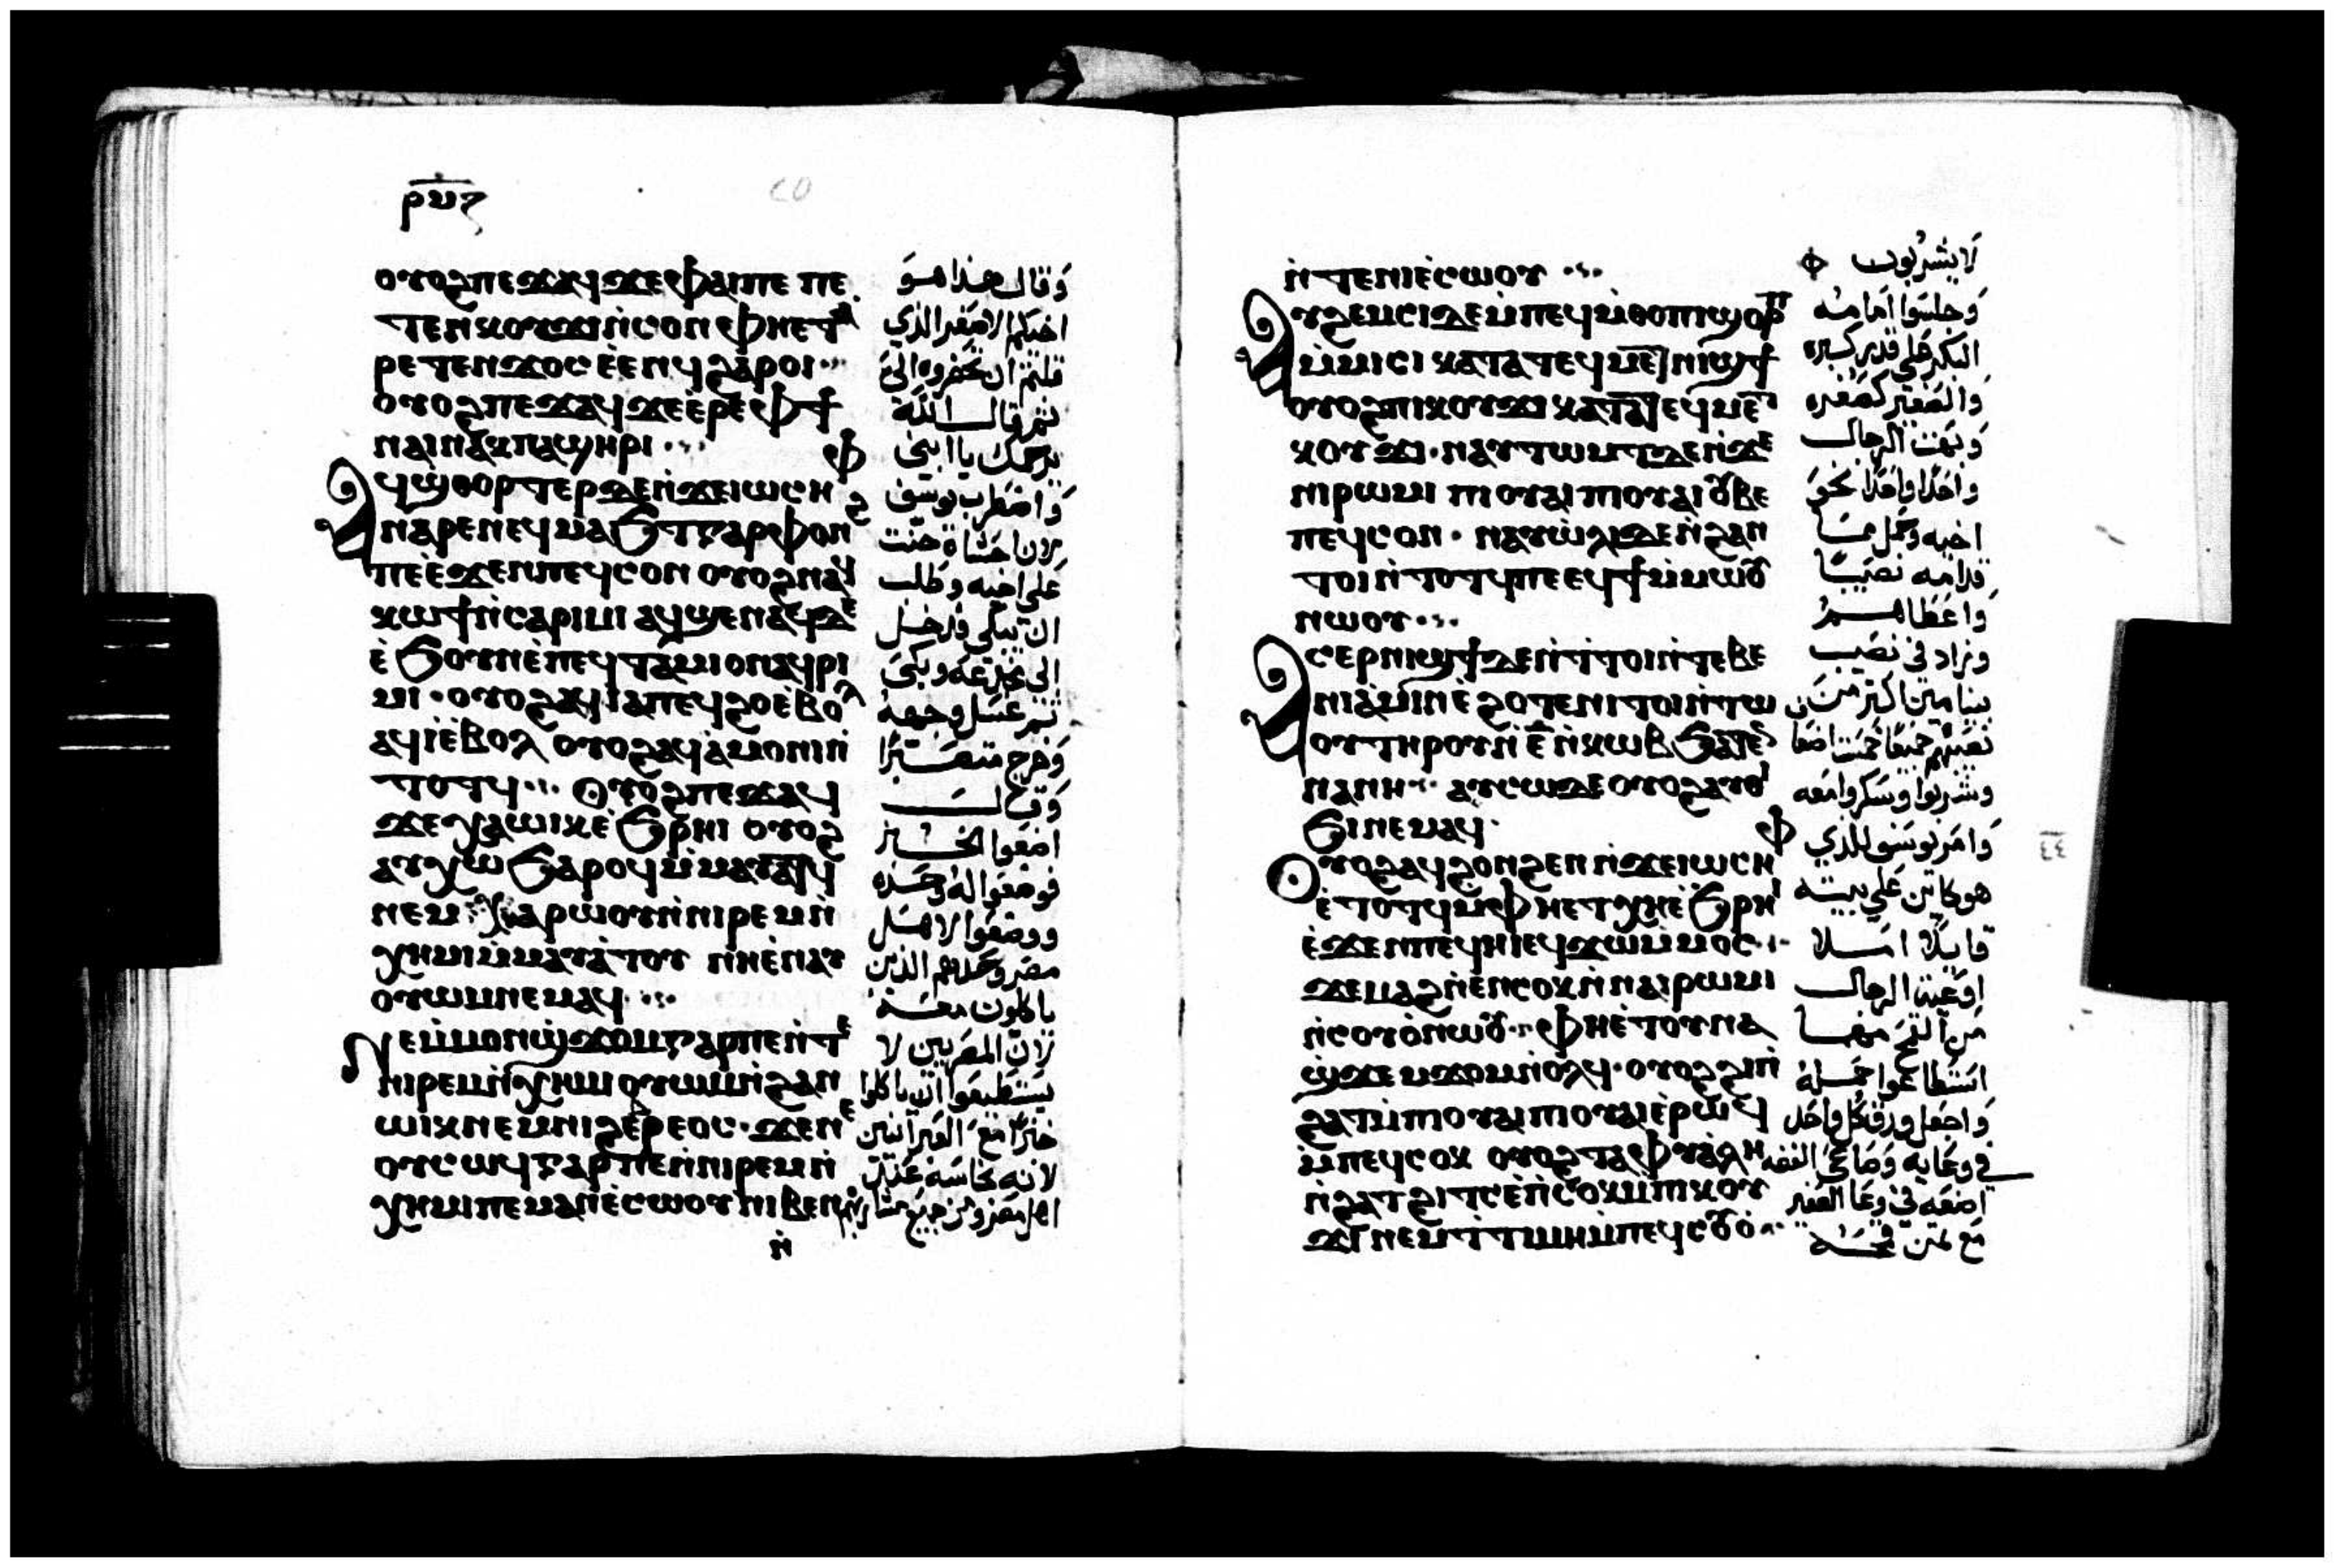 ⲟⲩⲟϩ ⲡⲉϫⲁϥ ϫⲉ ⲫⲁⲓ ⲡⲉ ⲡⲉ
ⲧⲉⲛⲕⲟⲩϫⲓ ⲛ̀ⲥⲟⲛ ⲫⲏⲉⲧⲁ
ⲣⲉⲧⲉⲛϫⲟⲥ ⲉ̀ⲉⲛϥ ϩⲁⲣⲟⲓ
ⲟⲩⲟϩ ⲡⲉϫⲁϥ ϫⲉ ⲉ̀ⲣⲉ ⲫϯ
ⲛⲁⲓ ⲛⲁⲕ ⲡⲁϣⲏⲣⲓ
ⲁϥϣ̀ⲑⲟⲣⲧⲉⲣ ϫⲉ ⲛ̀ϫⲉ ⲓⲱⲥⲏⲫ
ⲛⲁⲣⲉ ⲛⲉϥⲙⲁϧⲧ ⲅⲁⲣ ⲫⲟⲛϩ
ⲡⲉ ⲉ̀ϫⲉⲛ ⲡⲉϥⲥⲟⲛ ⲟⲩⲟϩ ⲛⲁϥ
ⲕⲱϯ ⲛ̀ⲥⲁ ⲣⲓⲙⲓ ⲁϥϣⲉⲛⲁϥ ϫⲉ
ⲉ̀ϧⲟⲩⲛ ⲉ̀ ⲡⲉϥⲧⲁⲙⲓⲟⲛ ⲁϥⲣⲓ
ⲙⲓ ⲟⲩⲟϩ ⲁϥⲓⲁ ⲡⲉϥϩⲟ ⲉ̀ⲃⲟⲗ
ⲁϥⲓ̀ ⲉ̀ⲃⲟⲗ ⲟⲩⲟϩ ⲁϥⲁ̀ⲙⲟⲛⲓ ⲛ̀
ⲧⲟⲧϥ ⲟⲩⲟϩ ⲡⲉϫⲁϥ
ϫⲉ ⲭⲁ ⲱⲓⲕ ⲉ̀ϧⲣⲏⲓ ⲟⲩⲟϩ
ⲁⲩⲭⲱ ϧⲁⲣⲟϥ ⲙ̀ⲙⲁⲩⲁⲧϥ
ⲛⲉⲙ ϧⲁⲣⲱⲟⲩ ⲛ̀ⲛⲓⲣⲉⲙⲛ̀
ⲭⲏⲙⲓ ⲙ̀ⲙⲁⲩⲁ̀ⲧⲟⲩ ⲛⲏⲉ̀ⲛⲁⲩ
ⲟⲩⲱⲙ ⲛⲉⲙⲁϥ
ⲛⲉ ⲙ̀ⲙⲟⲛ ϣ̀ϫⲟⲙ ⲅⲁⲣ ⲡⲉ ⲛ̀ⲧⲉ
ⲛⲓⲣⲉⲙⲛ̀ⲭⲏⲙⲓ ⲟⲩⲱⲙ ⲛ̀ϩⲁⲛ
ⲱⲓⲕ ⲛⲉⲙ ⲛⲓϩⲉⲃⲣⲉⲟⲥ ϫⲉ ⲛⲉ
ⲟⲩⲥⲱϥ ⲅⲁⲣ ⲡⲉ ⲛ̀ⲛⲓⲣⲉⲙⲛ̀
ⲭⲏⲙⲓ ⲡⲉ ⲙⲁⲛⲉ̀ⲥⲱⲟⲩ ⲛⲓⲃⲉⲛ
ⲛ̀
وقال هذا هو
اخيكم الاصغير الذي
قلتم ان تحضروه الي
ثم قال الله
يرحمك يا ابني
واضطرب يوسف
لان احشاه حنت
على اخيه وطلب
ان يبكي فدخل
الى مخدعه وبكى
ثم غسل وجهه
وخرج متصبرا
وقال
اضعوا الخبز
فوضعوا له وحده
ووضعوا لاهل
مصر وحدهم الذين
ياكلون معه
لان المصريين لا
يستطيعوا ان ياكلوا
خبزا مع العبرانيين
لانه نجاسه عند
اهل مصر
ⲛ̀ⲧⲉ ⲛⲓⲉ̀ⲥⲱⲟⲩ
ⲁⲩϩⲉⲙⲥⲓ ϫⲉ ⲙ̀ⲡⲉϥⲙ̀ⲑⲟ ⲡⲓϣⲟⲣⲡ
ⲙ̀ⲙⲓⲥⲓ ⲕⲁⲧⲁ ⲧⲉϥⲙⲉⲧⲛⲓϣϯ
ⲟⲩⲟϩ ⲡⲓⲕⲟⲩϫⲓ ⲕⲁⲧⲁ ⲧⲉϥⲙⲉⲧ
ⲕⲟⲩϫⲓ ⲛⲁⲩⲧⲱⲙⲧ ϫⲉ ⲛ̀ϫⲉ
ⲛⲓⲣⲱⲙⲓ ⲡⲓⲟⲩⲁⲓ ⲡⲓⲟⲩⲁⲓ ⲟⲩⲃⲉ
ⲡⲉϥⲥⲟⲛ ⲛⲁⲩⲱ̀ⲗⲓ ϫⲉ ⲛ̀ϩⲁⲛ
ⲧⲟⲓ ⲛ̀ⲧⲟⲧϥ ⲡⲉ ⲉϥϯ ⲙ̀ⲙⲱⲟⲩ
ⲛⲱⲟⲩ
ⲁⲥⲉⲣⲛⲓϣϯ ϫⲉ ⲛ̀ϯⲧⲟⲓ ⲛ̀ⲧⲉ ⲃⲉ
ⲛⲓⲁⲙⲓⲛ ⲉ̀ϩⲟⲧⲉ ⲛⲓⲧⲟⲓ ⲛ̀ⲧⲱ
ⲟⲩ ⲧⲏⲣⲟⲩ ⲛ̀ⲉ̅ ⲛ̀ⲕⲱⲃ
ⲁⲩⲥⲱ ϫⲉ ⲟⲩⲟϩ ⲁⲩⲑⲓ
ϧⲓ ⲛⲉⲙⲁϥ
ⲟⲩⲟϩ ⲁϥϩⲟⲛϩⲉⲛ ⲛ̀ϫⲉ ⲓⲱⲥⲏⲫ
ⲉ̀ⲧⲟⲧϥ ⲙ̀ⲫⲏⲉⲧⲭⲏ ⲉ̀ϧⲣⲏⲓ
ⲉ̀ϫⲉⲛ ⲡⲉϥⲏⲓ ⲉϥϫⲱ ⲙ̀ⲙⲟⲥ
ϫⲉ ⲙⲁϩ ⲛⲉⲛⲥⲟⲕ ⲛ̀ⲛⲁⲓⲣⲱⲙⲓ
ⲛ̀ⲥⲟⲩⲟ̀ ⲛⲱⲟⲩ ⲫⲏⲉ̀ⲧⲟⲩⲛⲁ
ϣ̀ϫⲉⲙϫⲟⲙ ⲛ̀ⲟⲗϥ ⲟⲩⲟϩ ϩⲓ ⲡⲓ
ϩⲁⲧ ⲙ̀ⲡⲓⲟⲩⲁⲓ ⲡⲓⲟⲩⲁⲓ ⲉ̀ⲣⲱϥ
ⲙ̀ⲡⲉϥⲥⲟⲕ ⲟⲩⲟϩ
ⲛ̀ϩⲁⲧ ϩⲓⲧⲥ ⲉ̀ⲡⲥⲟⲕ ⲙ̀ⲡⲓⲕⲟⲩ
ϫⲓ ⲛⲉⲙ ϯⲧⲓⲙⲏ ⲙ̀ⲡⲉϥⲥⲟⲩⲟ̀
لا يشربون
وجلسوا امامه
البكر على قدر كبره
والصغير كصغره
وبهت الرجال
واحدا واحدا نحو
اخيه
قدامه نصيبا
واعطاهم
وزاد في نصيب
بنيامين اكثر من
نصيبهم جميعا خمسة اضعا
وشربوا وسكروا معه
وامر يوسف للذي
هو كاين على بيته
قايلا املا
اوعية الرجال
من القمح مهما
استطاعوا حمله
واجعل ورق كل واحد
في وعايه وصاعي الفضه
اضعه في وعا الصغير
مع ثمن قمحه